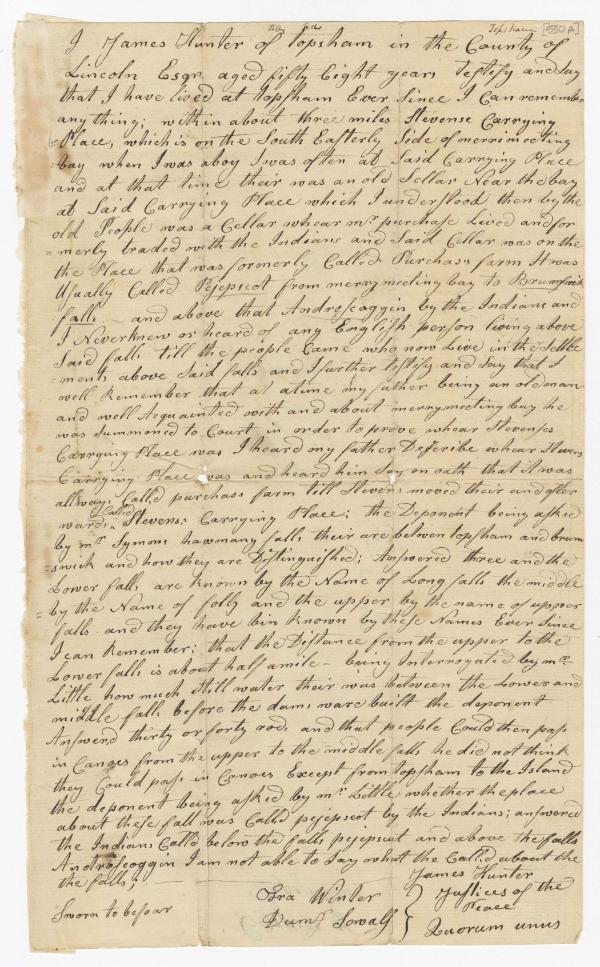 Topsham [530 A]
I James Hunter of Topsham in the County of
Lincoln Esqr. aged fifty Eight years Testify and Say
that I have lived at Topsham Ever Since I Can remember
any thing; within about three miles Stevense Carrying
Place, which is on the South Easterly Side of merrimeeting
bay when I was aboy I was often at Said Carrying Place
and at that time their was an old Sellar Near the bay
at Said Carrying Place which I understood then by the
old People was a Cellar whear mr. purchase Lived and for
=merly traded with the Indians and Said Cellar was on the
the Place that was formerly Called Purchas's farm It was
Usually Called Pejepscot from merrymeeting bay to Brumswick
falls and above that Androscoggin by the Indians and
I Never knew or heard of any English person living above
Said falls till the people Came who now Live in the Settle
=ments above Said falls and I further testify and Say that I
well Remember that at atime my father being an old man
and well Acquainted with and about merrymeeting bay he
was Summoned to Court in order to prove whear Stevenses
Carrying Place was I heard my father Describe whear Stevens
Carrying Place was and heard him Say on oath that it was
allways Call'd purchass farm till Stevens moved their and after
wards Called Stevenses Carrying Place; the Deponent being asked
by mr. Symons how many falls their are betwen Topsham and brum
=swick and how they are Distinguished; Answered three and the
Lower falls are known by the Name of Long falls the middle
=by the Name of folly and the upper by the name of upper
falls and they have bin known by these Names Ever Since
I can Remember; that the Distance from the upper to the
Lower falls is about half amile - being Interrogated by mr.
Little how much Still water their was between the Lower and
middle falls before the dams ware built the deponent
Answerd thirty or forty rods and that people Could then pass
in Canoes from the upper to the middle falls he did not think
they Could pass in Canoes Except from Topsham to the Island
the deponent being asked by mr. Little whether the place
about these falls was Call'd pejepscot by the Indians; answered
the Indians Call'd below the falls pejepscut and above the falls
Androscoggin I am not able to Say what the Call'd about the
the falls;
James Hunter
Sworn to before
Ira Winter
Justices of the
Peace
Dumr. Sewall
Quorum unus